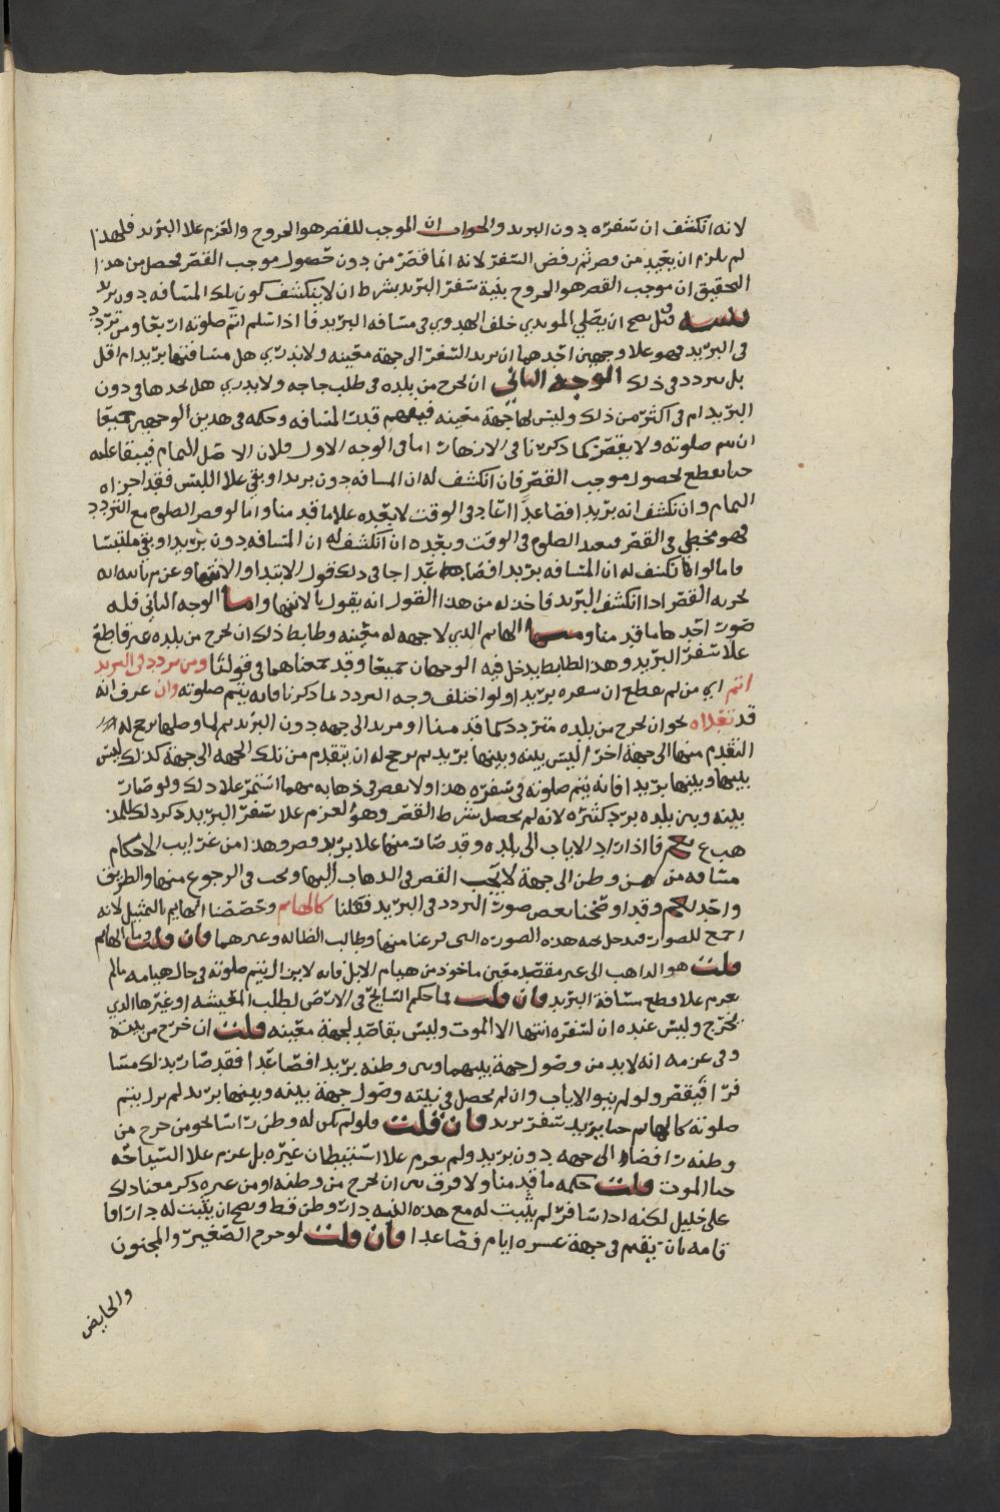 لانه انكشف ان سفره دون البريد والجواب ان الموجب للقصر هو الخروج والعزم علا البريد فلهذا
لم يلزم ان يعيد من قصر ثم رفض السفر لانه انما قصر من دون حصول موجب القصر فحصل من هذا
التحقيق ان موجب القصر هو الخروج بنية سفر البريد بشرط ان لا ينكشف كون تلك المسافه دون بريد
قيل يصح ان يصلي المويدي خلف الهدوي في مسافه البريد فاذا سلم اتم صلوته اربعا ومن تردد
في البريد فهو علا وجهين احدهما ان يريد السفر الى جهة معينه ولا يدري هل مسافتها بريد ام اقل
بل يتردد في ذلك الوجه الثاني ان يخرج من بلده في طلب حاجه ولا يدري هل يجدها في دون
البريد ام في اكثر من ذلك وليس لها جهة معينه فيفهم قدر المسافه وحكمه في هذين الوجهين جميعا
ان يتم صلوته ولا يقصر كما ذكرنا في الازهار اما في الوجه الاول فلان الاصل التمام فيبقا عليه
حتا يقطع بحصول موجب القصر فان انكشف له ان المسافه دون بريد او بقي علا اللبس فقد اجزاه
التمام وان انكشف انه بريد فصاعدا اعاد في الوقت لا بعده علا ما قدمنا واما لو قصر الصلوه مع التردد
فهو مخطي في القصر فيعيد الصلوه في الوقت وبعده ان انكشف له ان المسافه دون بريد او بقي ملتبسا
واما لو انكشف له ان المسافه بريد فصاعدا جا في ذلك قول الابتدا والانتها وعن م بالله انه
يجزيه القصر اذا انكشف البريد فاخذ له من هذا القول انه يقول بالانتها واما الوجه الثاني فله
صور احدها ما قدمنا ومنها الهايم الذي لا جهه له معينه وضابط ذلك ان يخرج من بلده غير قاطع
علا سفر البريد وهذا الضابط يدخل فيه الوجهان جميعا وقد جمعناهما في قولنا ومن تردد في البريد
اتم اي من لم يقطع ان سفره بريد او لو اختلف وجه التردد كما ذكرنا فانه يتم صلوته وان عرف انه
قد تعداه نحو ان يخرج من بلده مترددا كما قدمنا او مريدا الى جهه دون البريد ثم لما وصلها ترجح له
التقدم منها الى جهة اخرا ليس بينه وبينها بريد ثم ترجح له ان يتقدم من تلك الجهه الى جهة كذلك ليس
بينها وبينها بريد فانه يتم صلوته في سفره هذا ولا يقصر في ذهابه مهما استمر علا ذلك ولو صارت
بينه وبين بلده برد كثيره لانه لم يحصل شرط القصر وهو العزم علا سفر البريد ذكر ذلك
هب ع فاذا اراد الاياب الى بلده وقد صارت منها علا بريد قصر وهذا من غرايب الاحكام
مسافه من وطن الى جهة لا يجب القصر في الذهاب اليها ويجب في الرجوع منها والطريق
واحد وقد اوضحنا بعض صور التردد في البريد فقلنا كالهايم وخصصنا الهايم بالتمثيل لانه
اجمع للصور فيدخل تحته هذه الصوره التي فرغنا منها وطالب الضاله وغيرهما فان قلت وما الهايم
قلت هو الذاهب الى غير مقصد معين ماخوذ من هيام الابل فانه لا يزال يتم صلوته في حال هيامه ما لم
يعزم علا قطع مسافة البريد فان قلت فما حكم السايح في الارض لطلب المعيشه او غيرها الذي
يخرج وليس عنده ان لسفره انتها الا الموت وليس بقاصد لجهة معينه قلت ان خرج من بيته
وفي عزمه انه لابد من وصول جهة بينهما وبين وطنه بريد فصاعدا فقد صار بذلك مسا
فرا فيقصر ولو لم ينو الاياب وان لم يحصل في نيته وصول جهة بينه وبينها بريد لم يزل يتم
صلوته كالهايم حتا يريد سفر بريد فان قلت فلو لم يكن له وطن راسا نحو من خرج من
وطنه رافضا الى جهه دون بريد ولم يعزم علا استيطان غيره بل عزم علا السياحه
حتا الموت قلت حكمه ما قدمنا ولا فرق بين ان يخرج من وطنه او من غيره ذكر معنا ذلك
علي خليل لكنه اذا سافر لم يثبت له مع هذه النيه دار وطن قط ويصح ان يثبت له دار اقا
قامه بان يقيم في جهة عشره ايام فصاعدا فان قلت لو خرج الصغير والمجنون
والحايض